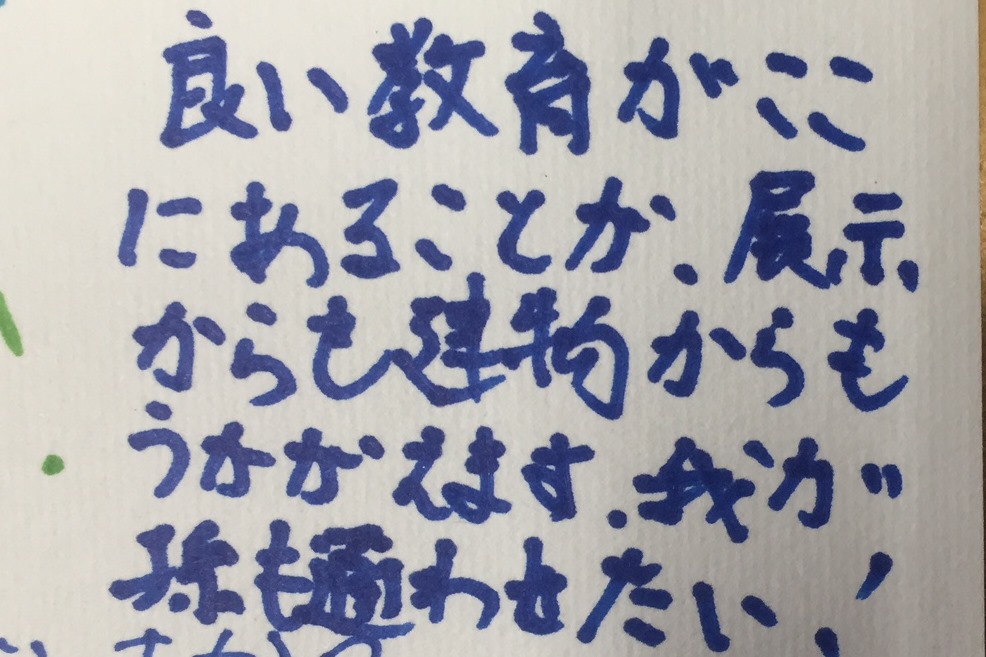 良い教育がここ
にあることが、展示
からも建物からも
うかがえます。我が
孫も通わせたい!